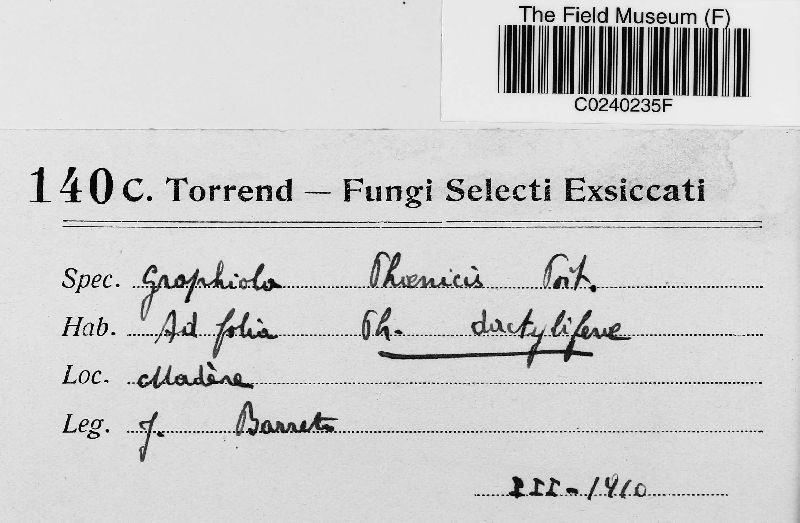 The Field Museum (F)
C0240235F
140 C. Torrend — Fungi Selecti Exsiccati
Spec. Graphiola Phœnicis Poit.
Hab. Ad folia Ph. dactyliferæ
Loc. Madère
Leg. J. Barreto
III-1910